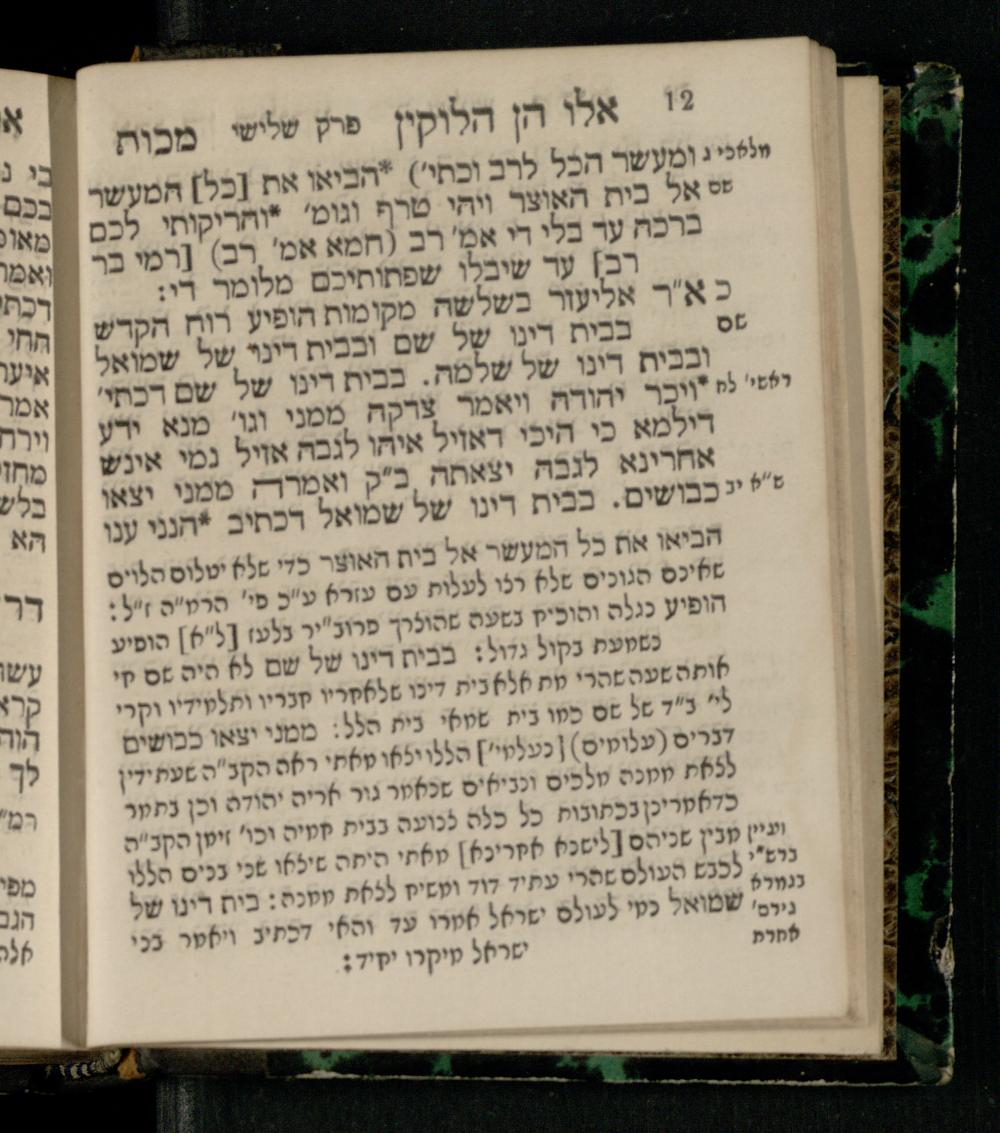 12 אלו הן הלוקין פרק שלישי מכות
מלאכי ג ומעשר הכל לרב וכתי') *הביאו את [כל] המעשר
שם אל בית האוצר ויהי טרף וגומ' *והריקותי לכם
ברכה עד בלי די אמ' רב (חמא אמ' רב) [רמי בר
רב] עד שיבלו שפתותיכם מלומר די:
כ א״ר אליעזר בשלשה מקומות הופיע רוח הקדש
שם בבית דינו של שם ובבית דינו של שמואל
ובבית דינו של שלמה. בבית דינו של שם דכתי'
ראשי' לח *ויכר יהודה ויאמר צדקה ממני וגו' מנא ידע
דילמא כי היכי דאזיל איהו לגבה אזיל נמי אינש
אחרינא לגבה יצאתה ב״ק ואמרה ממני יצאו
ש״א יב כבושים. בבית דינו של שמואל דכתיב *הנני ענו
הביאו את כל המעשר אל בית האוצר כדי שלא יטלוס הלוים
שאינם הגונים שלא רצו לעלות עם עזרא ע״כ פי' הרמ״ה ז״ל:
הופיע נגלה והוכיח בשעה שהולרך פרוב״יר בלעז [ל״א] הופיע
נשמעת בקול גדול: בבית דינו של שם לא היה שם חי
אותה שעה שהרי מת אלא בית דינו שלאחריו חבריו ותלמידיו וקרי
לי' ב״ד של שם כמו בית שמאי בית הלל: ממני יצאו כבושים
דברים (עלומים) [נעלמי'] הללו יצאו מאתי ראה הקב״ה שעתידין
לצאת ממנה מלכים ונביאים שנאמר גור אריה יהודה וכן בתמר
כדאמרינן בכתובות כל כלה צנועה בבית חמיה וכו' זימן הקב״ה
מבין שניהם [לישנא אחרינא] מאתי היתה שיצאו שני בנים הללו
לכבש העולם שהרי עתיד דוד ומשיח לצאת ממנה: בית דינו של
שמואל כמי לעולם ישראל אמרו עד והאי דכתיב ויאמר בכי
ישראל מיקרו יחיד:
ועניין
ברש״י
בגמרא
גירס'
אחרת